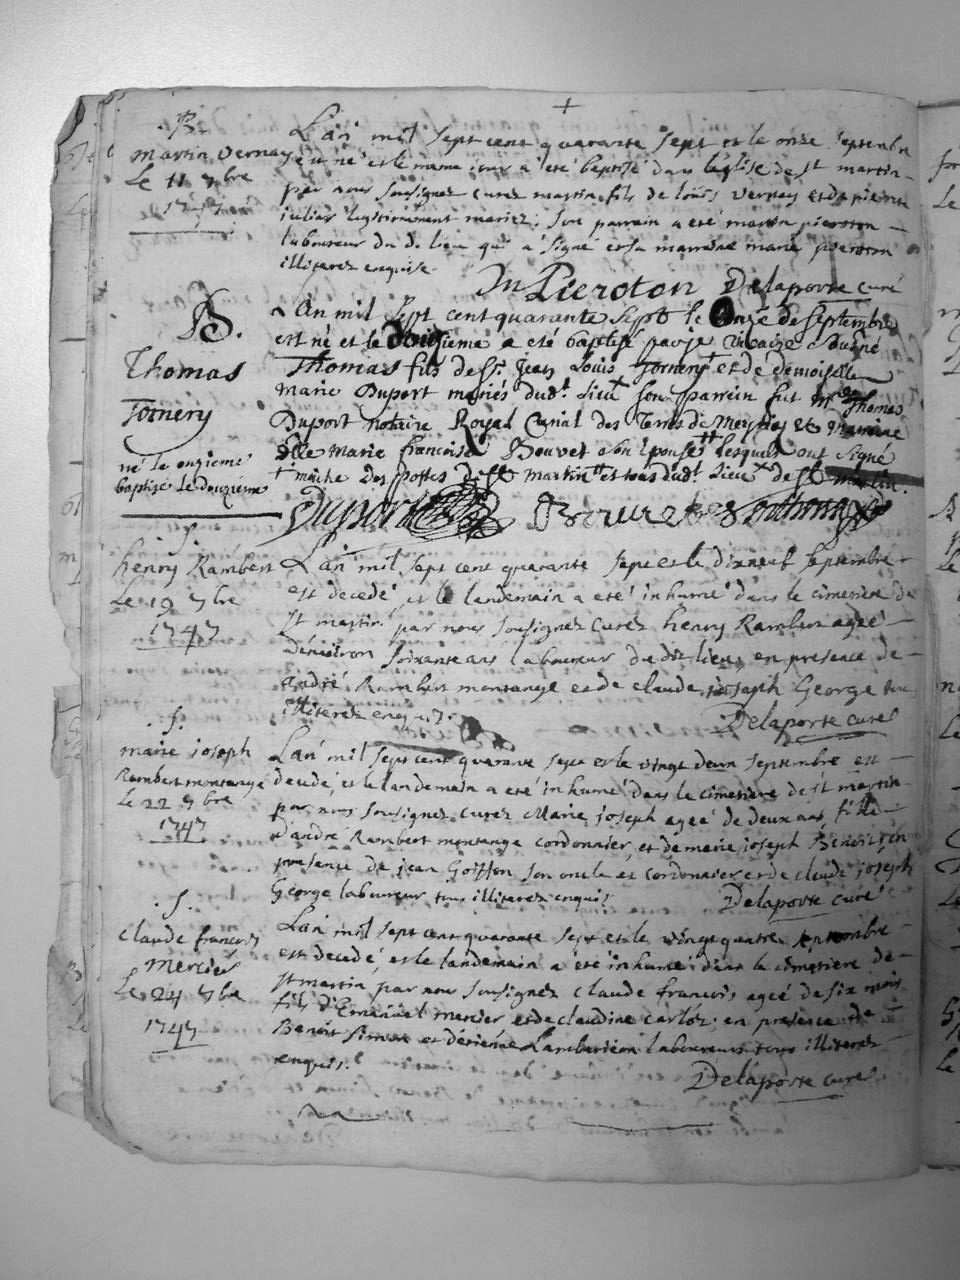 .B.
Martin Vernay
Le 11 7bre
1747
L'an mil sept cent quarante sept et le onze septembre
est né et le meme jour a été baptisé dans l'église de st martin
par nous soussignez curez martin fils de louis vernay et de pierette
juliar legitimement mariez; son parrain a eté martin pieroton
laboureur du d. lieu qui a signé et sa marraine marie pieroton
illiterez enquise.
Pieroton Delaporte curé
B.
Thomas
Tornery
né le onzieme
baptisé Le douzieme
L'An mil sept cent quarante sept le Onze de septembre
est né et le douzieme a été baptisé par je vicaire soussigné
Thomas fils de Sr. Jean Louis Tornery † et de demoiselle
Marie Duport mariés dudt. Lieu son parrein fut Mr Thomas
Duport notaire Royal des Terres de et marraine
dlle Marie francoise Bouvet son Epouse †† lesquels ont signé
† maitre des postes de St Martin †† et tous dudt. Lieu de St
Duport Bouvet
.S.
henry Rambert
Le 19 7bre
1747
L'an mil sept cent quarante sept et le dixneuf septembre
est decedé, et le landemain a eté inhumé dans le cimetiere de
st martin par nous soussignez curez henry Rambert agée
d'environ soixante ans laboureur du dit lieu, en presence de
andré Rambert montange et de claude joseph George tous
illiterez enquis.
Delaporte curé
.S.
marie joseph
Rambert montange
Le 22 7bre
1747
L'an mil sept cent quarante sept et le vingt deux septembre est
decedé, et le landemain a eté inhumé dans le cimetiere de st martin
par nous soussignez curez Marie joseph agée de deux ans, fille
d'andré Rambert montange cordonnier, et de marie joseph Benoit, en
presence de jean Goiffon son oncle et cordonnier et de claude joseph
George laboureur tous illiterez enquis.
Delaporte curé
.S.
claude francois
Mercier
Le 24 7bre
1747
L'an mil sept cent quarante sept et le vingt quatre septembre
est decedé, et le landemain a eté inhumé dans le cimetiere de
st martin par nous soussignez claude francois, agée de six mois
fils d'Emanuel mercier et de claudine carloz. en presence de
Benoit Simon et d'étienne laboureurs tous illiterez
enquis.
Delaporte curé